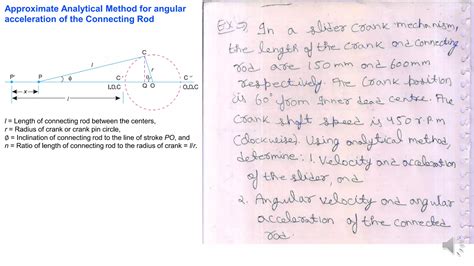 Approximate Analytical Method for angular
acceleration of the Connecting Rod
C
l
r
P'
P
ϕ
θ
C'
Q
O
C''
I.D.C
O.D.C
x
l = Length of connecting rod between the centers,
r = Radius of crank or crank pin circle,
ϕ = Inclination of connecting rod to the line of stroke PO, and
n = Ratio of length of connecting rod to the radius of crank = l/r.
Ex ⇒ In a slider crank mechanism,
the length of the crank and connecting
rod are 150mm and 600mm
respectively. The crank position
is 60° from inner dead centre. The
crank shaft speed is 450 r.p.m
(clockwise). Using analytical method,
determine: 1. Velocity and acceleration
of the slider, and
2. Angular velocity and angular
acceleration of the connected
rod.